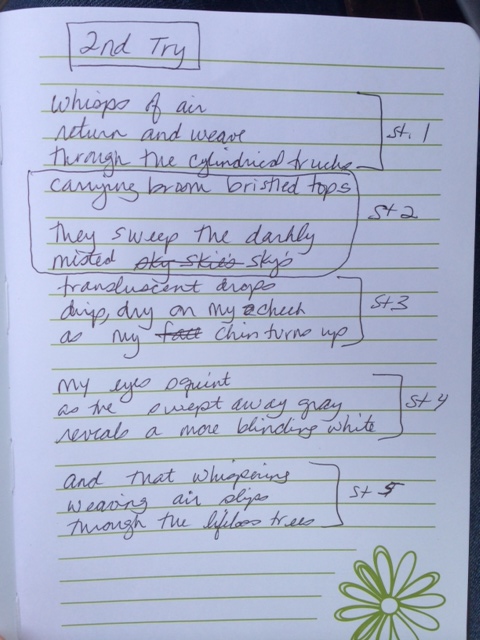 2nd Try
whisps of air
return and weave
st. 1
through the cylindrical trucks
carrying broom bristled tops
st 2
they sweep the darkly
misted sky skies sky's
transluscent drops
drip, dry on my cheek
st 3
as my face chin turns up
my eyes squint
as the swept away gray
st 4
reveals a more blinding white
and that whispering
weaving air slips
st 5
through the lifeless trees